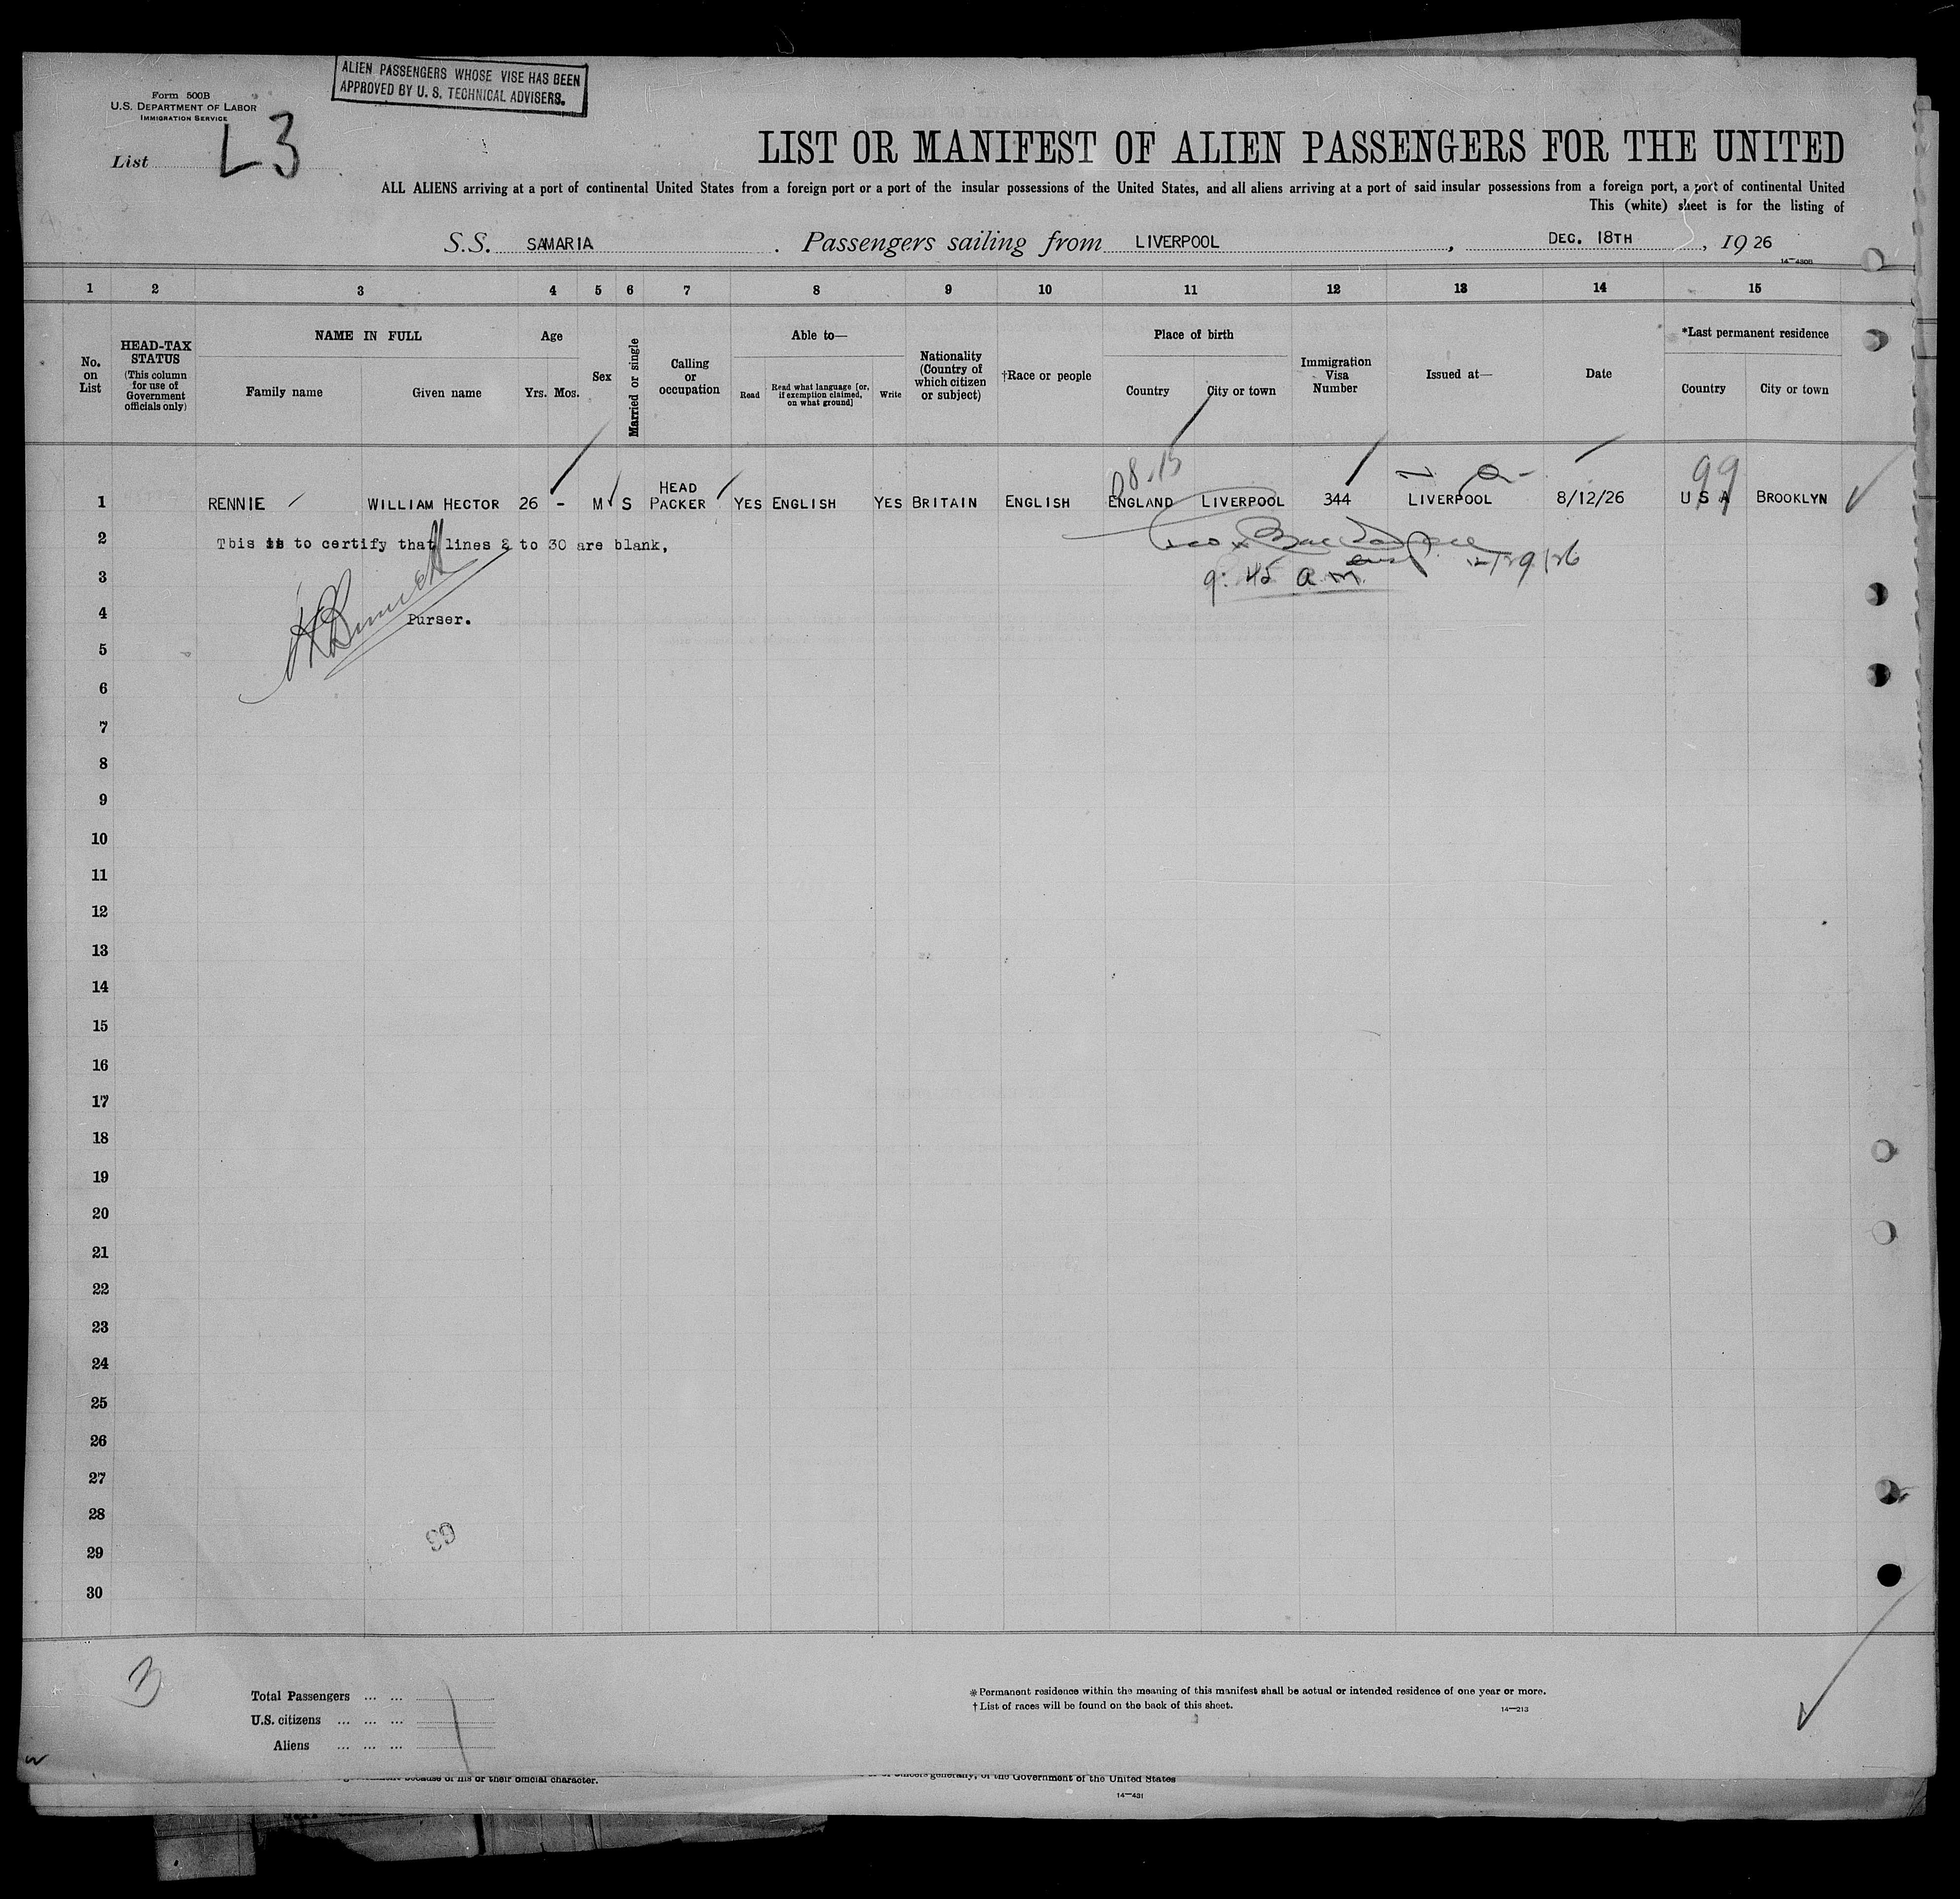 ALIEN PASSENGERS WHOSE VISE HAS BEEN
APPROVED BY U. S. TECHNICAL ADVISERS.
Form 500B
U.S. DEPARTMENT OF LABOR
IMMIGRATION SERVICE
List L3
LIST OR MANIFEST OF ALIEN PASSENGERS FOR THE UNITED
ALL ALIENS arriving at a port of continental United States from a foreign port or a port of the insular possessions of the United States, and all aliens arriving at a port of said insular possessions from a foreign port, a port of continental United
This (white) sheet is for the listing of
S.S. SAMARIA . Passengers sailing from LIVERPOOL , DEC. 18TH , 19 26
14—430B
1 2 3 4 5 6 7 8 9 10 11 12 13 14 15
No. on List
HEAD-TAX STATUS (This column for use of Government officials only)
NAME IN FULL
Family name Given name
Age
Yrs. Mos.
Sex
Married or single
Calling or occupation
Able to—
Read Read what language [or, if exemption claimed, on what ground] Write
Nationality (Country of which citizen or subject)
†Race or people
Place of birth
Country City or town
Immigration Visa Number
Issued at—
Date
*Last permanent residence
Country City or town
08.15 99
1 RENNIE WILLIAM HECTOR 26 - M S HEAD PACKER YES ENGLISH YES BRITAIN ENGLISH ENGLAND LIVERPOOL 344 LIVERPOOL 8/12/26 U S A BROOKLYN
2 Tbis is to certify that lines 2 to 30 are blank,
12/29/26
3 9:45 a.m.
4 Purser.
5
6
7
8
9
10
11
12
13
14
15
16
17
18
19
20
21
22
23
24
25
26
27
28
29
30
63
3
Total Passengers ... ...
U.S. citizens ... ... ...
Aliens ... ... ...
* Permanent residence within the meaning of this manifest shall be actual or intended residence of one year or more.
† List of races will be found on the back of this sheet.
14—213
because of his or their official character.
of officers generally, of the Government of the United States
14—431